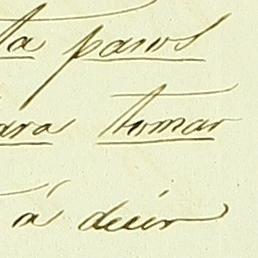 ta paros
ara tomar
á decir